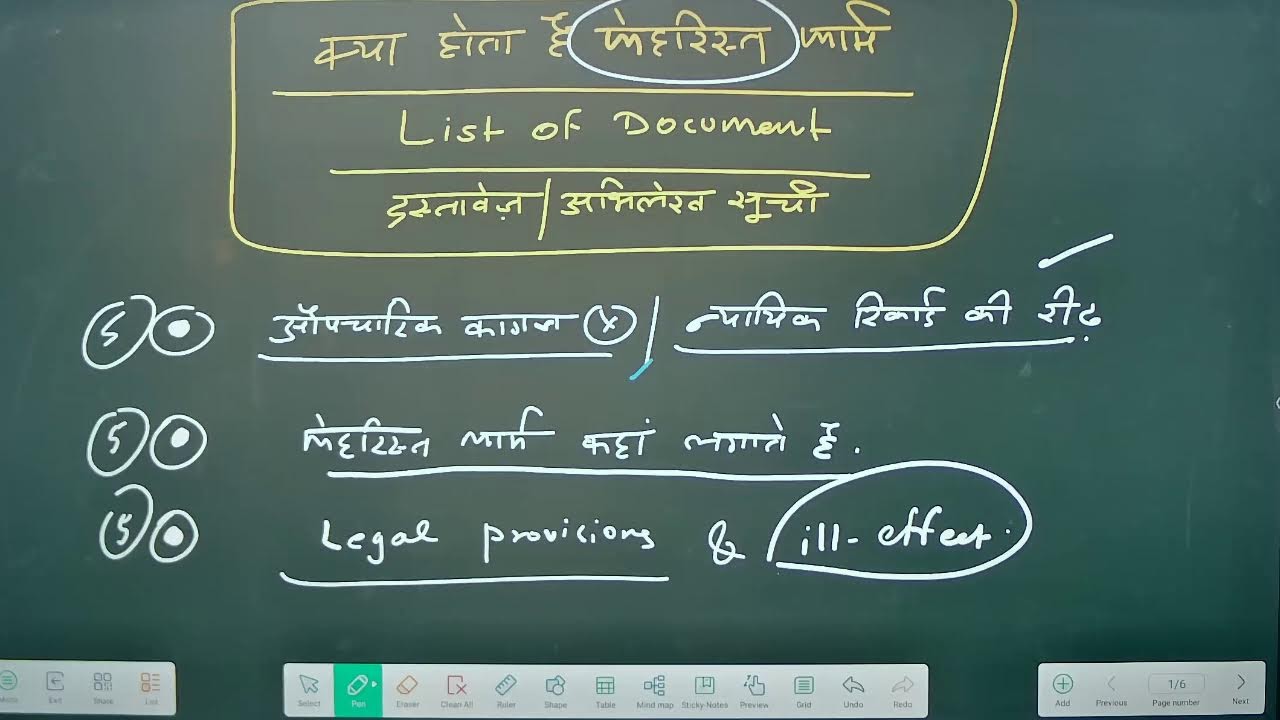 क्या होता है फेहरिस्त फार्म
List of Document
दस्तावेज़ / अभिलेख सूची
5 औपचारिक कागज x / न्यायिक रिकार्ड की रीढ़
5 फेहरिस्त फार्म कहां लगाते हैं.
5 Legal provicions & ill-effect.
Menu Exit Share List
Select Pen Eraser Clean All Ruler Shape Table Mind map Sticky-Notes Preview Grid Undo Redo
Add Previous 1/6 Page number Next